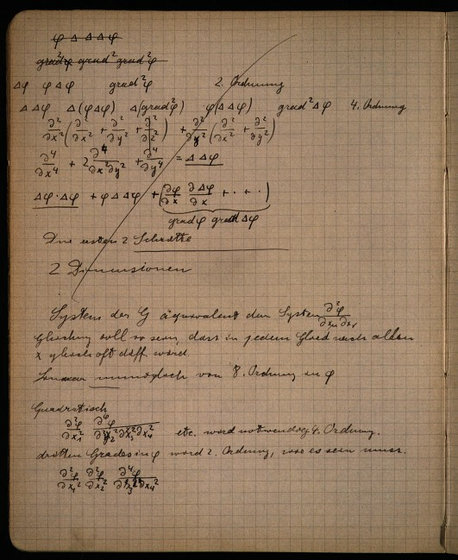 φ Δ Δ Δ φ
grad²φ grad² grad²φ
Δφ φΔφ grad²φ 2. Ordnung
ΔΔφ Δ(φΔφ) Δ(grad²φ) φ(ΔΔφ) grad²Δφ 4. Ordnung
∂²/∂x² (∂²/∂x² + ∂²/∂y² + ∂²/∂z²) + ∂²/∂y² (∂²/∂x² + ∂²/∂y²)
∂⁴/∂x⁴ + 2 ∂⁴/∂x²∂y² + ∂⁴/∂y⁴ = ΔΔφ
Δφ·Δφ + φΔΔφ + (∂φ/∂x ∂Δφ/∂x + · + · )
gradφ grad Δφ
Die ersten 2 Schritte
2 Dimensionen
System der G äquivalent dem System ∂²φ/∂xμ∂xν
Gleichung soll so sein, dass in jedem Glied nach allen
x gleich oft diff. wird.
unmöglich von 8. Ordnung in φ
Quadratisch
∂²φ/∂x₁² ∂⁶φ/∂x₂²∂x₃²∂x₄² etc. wird notwendig 4. Ordnung.
dritten Grades in φ wird 2. Ordnung, wie es sein muss.
∂²φ/∂x₁² ∂²φ/∂x₂² ∂⁴φ/∂x₃²∂x₄²